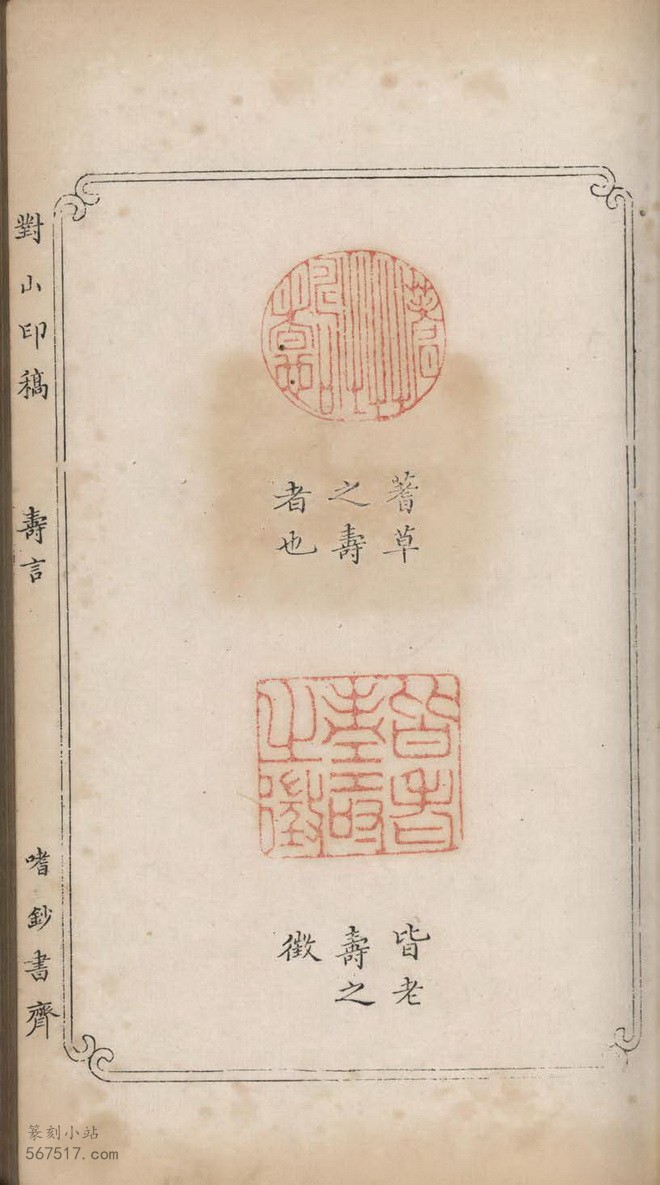 蓍草
之壽
者也
皆老
壽之
徵
對山印稿 壽言 嗜鈔書齊
篆刻小站
567517.com